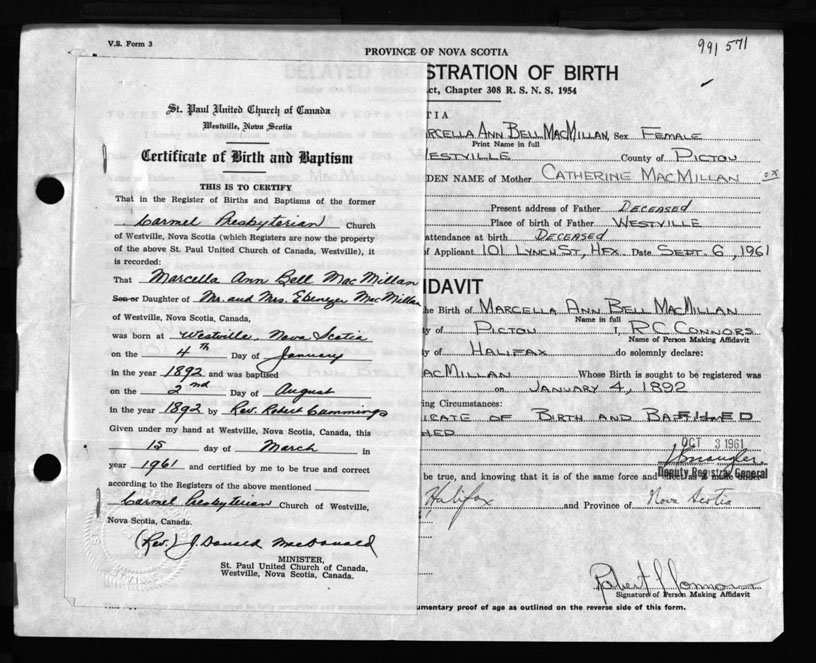 V.S. Form 3
991 571
PROVINCE OF NOVA SCOTIA
STRATION OF BIRTH
ct, Chapter 308 R. S. N. S. 1954
St. Paul United Church of Canada
Westville, Nova Scotia
Certificate of Birth and Baptism
THIS IS TO CERTIFY
That in the Register of Births and Baptisms of the former
Carmel Presbyterian Church
of Westville, Nova Scotia (which Registers are now the property
of the above St. Paul United Church of Canada, Westville), it
is recorded:
That Marcella Ann Bell MacMillan
Son or Daughter of Mr. and Mrs. Ebenezer MacMillan
of Westville, Nova Scotia, Canada,
was born at Westville, Nova Scotia
on the 4th Day of January
in the year 1892 and was baptised
on the 2nd Day of August
in the year 1892 by Rev. Robert Cummings
Given under my hand at Westville, Nova Scotia, Canada, this
15 day of March in
year 1961 and certified by me to be true and correct
according to the Registers of the above mentioned
Carmel Presbyterian Church of Westville,
Nova Scotia, Canada.
(Rev.) J. Donald MacDonald
MINISTER,
St. Paul United Church of Canada,
Westville, Nova Scotia, Canada.
TIA
RCELLA ANN BELL MACMILLAN, Sex FEMALE
Print Name in full
ESTVILLE County of PICTOU
DEN NAME of Mother CATHERINE MACMILLAN
Present address of Father DECEASED
Place of birth of Father WESTVILLE
attendance at birth DECEASED
f Applicant 101 LYNCH ST, HFX. Date SEPT. 6, 1961
IDAVIT
he Birth of MARCELLA ANN BELL MACMILLAN
Name in full
y of PICTOU I, R C CONNORS
Name of Person Making Affidavit
y of HALIFAX do solemnly declare:
ACMILLAN Whose Birth is sought to be registered was
on JANUARY 4, 1892
ing Circumstances:
ICATE OF BIRTH AND BA
HED
OCT 3 1961
Deputy Registrar General
be true, and knowing that it is of the same force and
Halifax and Province of Nova Scotia
Signature of Person Making Affidavit
umentary proof of age as outlined on the reverse side of this form.